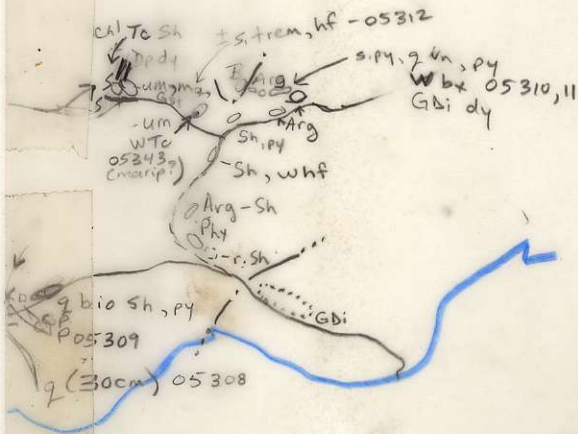 chl Tc Sh
± s, trem, hf - 05312
Dp dy
s, py, q vn, py
W bx 05310, 11
GDi dy
Arg
Arg
-um
WTc
05343
(marip?)
Sh, py
-Sh, whf
Arg-Sh
Phy
-r. Sh
q bio Sh, py
P 05309
GDi
q (30cm) 05308